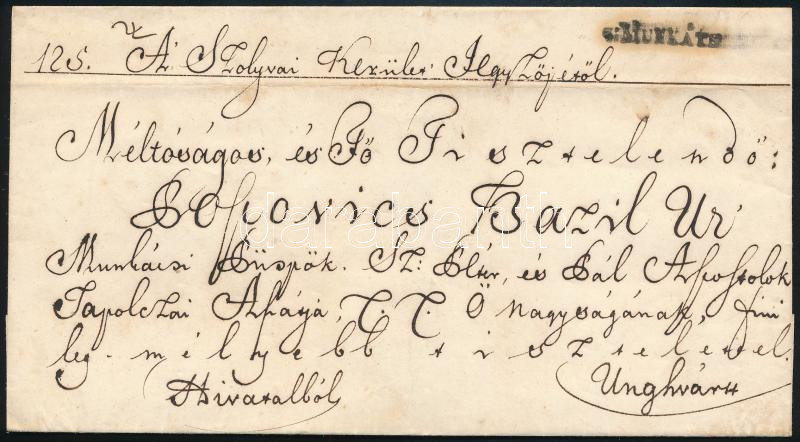 v: MUNKÁTS
125. A' Szolyvai Kerület Jegyzőjétől.
Méltóságos, és Fő Tisztelendő:
Popovics Bazil Úr
Munkácsi Püspök. Sz: Péter, és Pál Apostolok
Tapolczai Apátja, T. T. Ő Nagyságának,
leg-mélyebb tisztelettel.
Hivatalból Unghvártt
darabanth